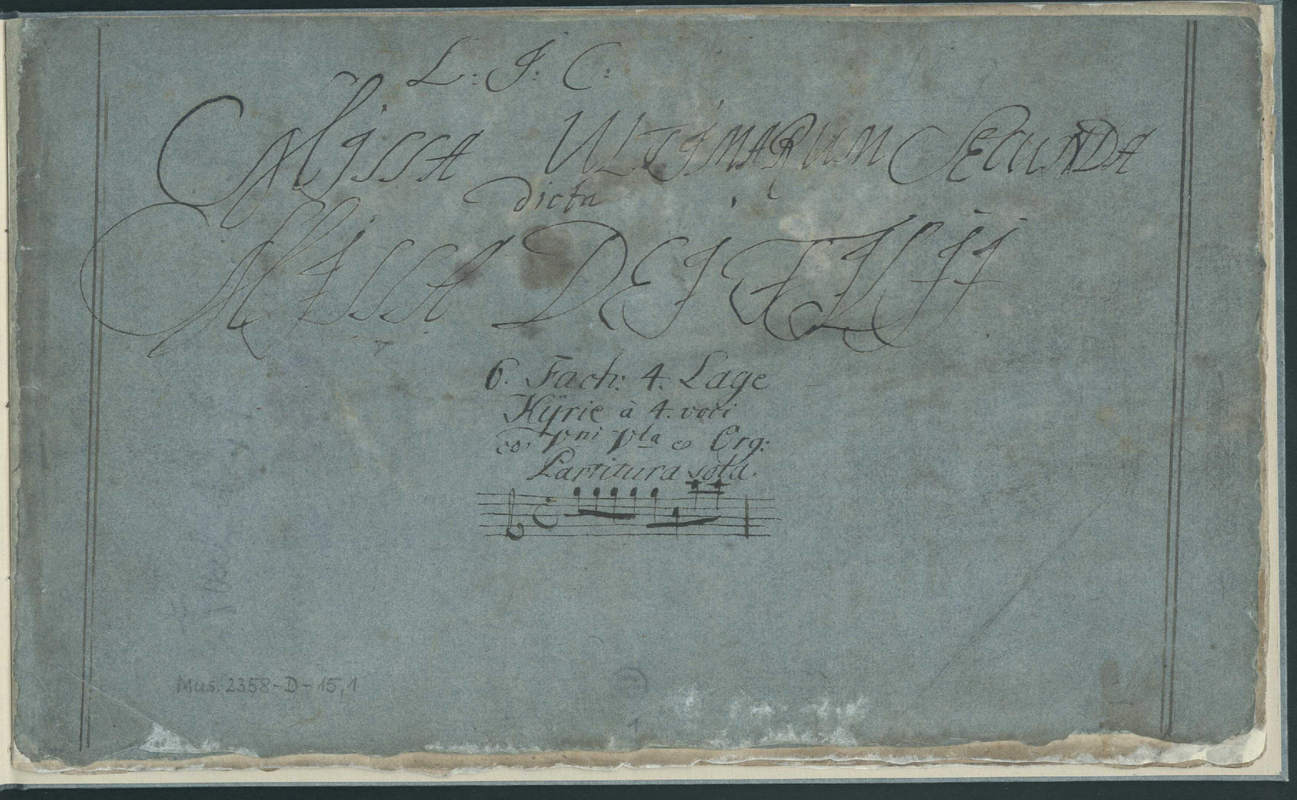 L: J: C:
MISSA ULTIMARUM SECUNDA
dicta
MISSA DEI FILII
6. Fach: 4. Lage
Kÿrie à 4. voci
co' Vni Vla e Org:
Partitura sola.
Mus. 2358-D-15,1
1